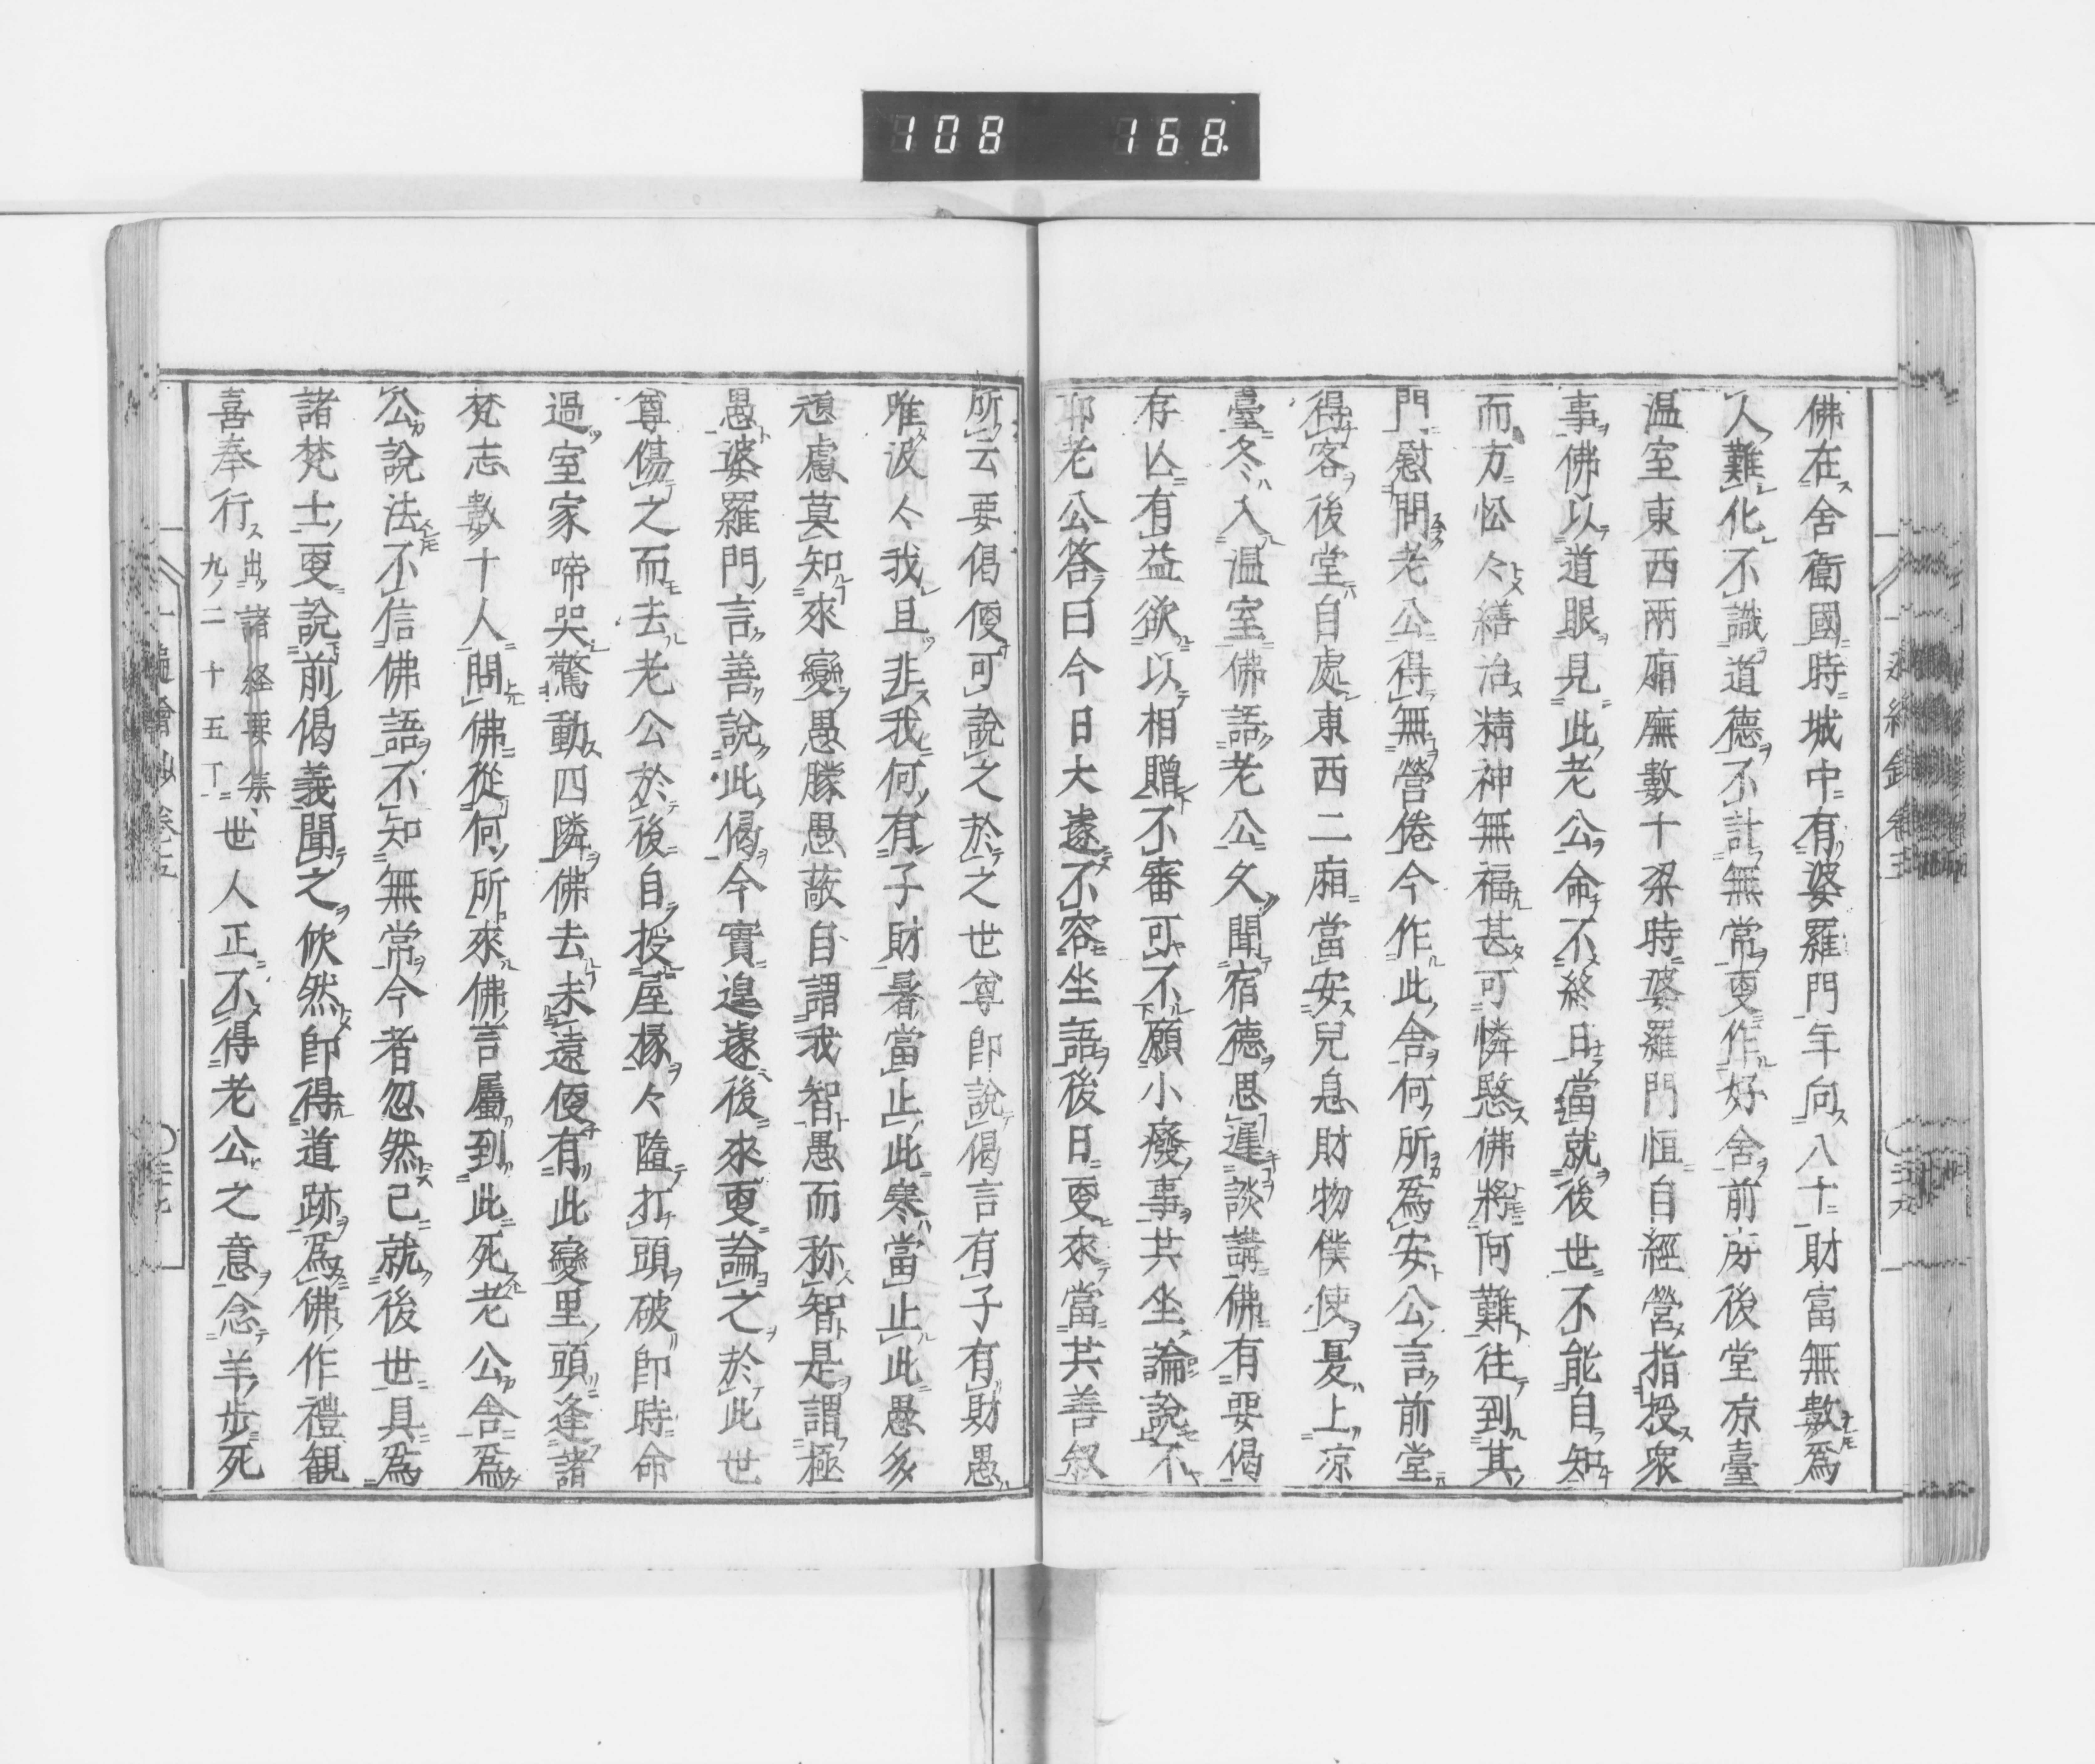 108 168
佛在舍衞國時城中有婆羅門年向八十財富無數爲
人難化不識道德不計無常更作好舍前房後堂凉臺
温室東西兩廂廡數十梁時婆羅門恒自經營指授衆
事佛以道眼見此老公命不終日當就後世不能自知
而方忪々繕治精神無福甚可憐愍佛將阿難往到其
門慰問老公得無營倦今作此舍何所爲安公言前堂
得客後堂自處東西二廂當安兒息財物僕使夏上凉
臺冬入温室佛語老公久聞宿德思遲談講佛有要偈
存亾有益欲以相贈不審可不願小廢事共坐論說不
耶老公答曰今日大遽不容坐語後日更來當共善叙
所云要偈便可說之於之世尊即說偈言有子有財愚
唯汲々我且非我何有子財暑當止此寒當止此愚多
預慮莫知來變愚朦愚蔽自謂我智愚而称智是謂極
愚婆羅門言善說此偈今實遑遽後來更論之於此世
尊傷之而去老公於後自授屋椽々隨打頭破即時命
過室家啼哭驚動四隣佛去未遠便有此變里頭逢諸
梵志數十人問佛從何所來佛言屬到此死老公舍爲
公說法不信佛語不知無常今者忽然已就後世具爲
諸梵士更說前偈義聞之欣然即得道跡爲佛作禮観
喜奉行出諸経要集九ノ二十五丁世人正不得老公之意念羊歩死